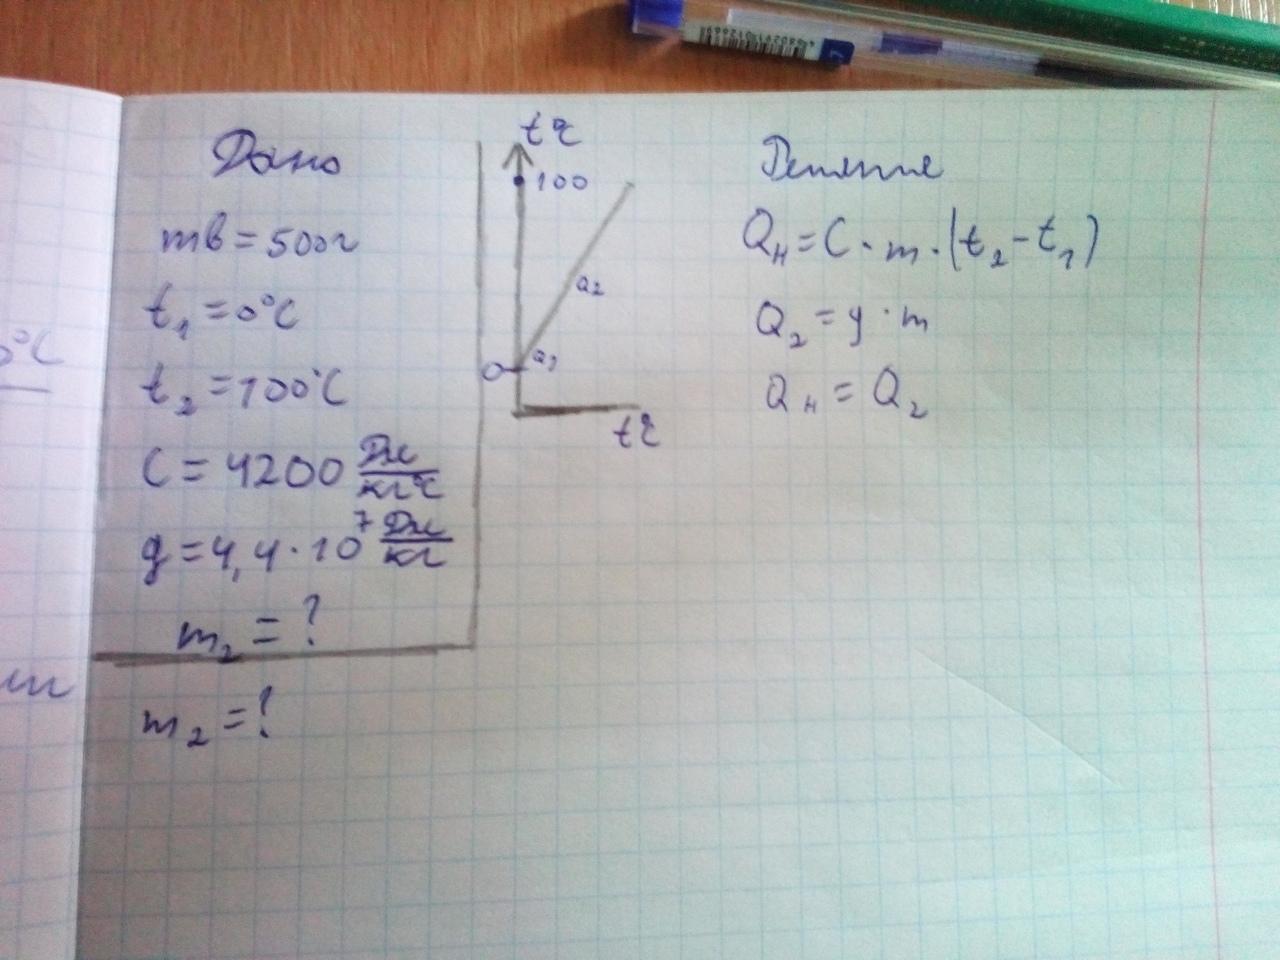 Дано
mв = 500г
t₁ = 0°C
t₂ = 100°C
C = 4200 Дж/кг°C
g = 4,4 · 10⁷ Дж/кг
m₂ = ?
m₂ = ?
t°C
100
Q₂
Q₁
0
Решение
Qн = C · m · (t₂ - t₁)
Q₂ = g · m
Qн = Q₂
0°C